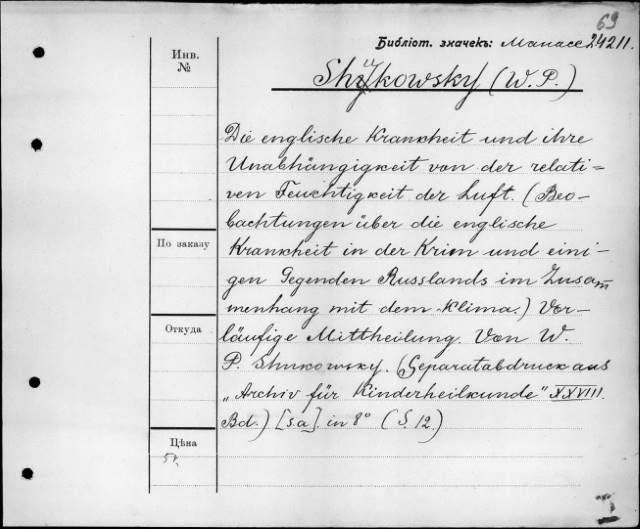 69
Библіот. значекъ: Манасе 24211.
Инв.
№
Shukowsky (W. P.)
Die englische Krankheit und ihre
Unabhängigkeit von der relati=
ven Feuchtigkeit der Luft. (Beo-
bachtungen über die englische
По заказу
Krankheit in der Krim und eini-
gen Gegenden Russlands im Zusam
menhang mit dem Klima.) Vor-
Откуда
läufige Mittheilung. Von W.
P. Shukowsky. (Separatabdruck aus
„Archiv für Kinderheilkunde" XXVIII.
Bd.) [s.a]. in 8° (S. 12.)
Цѣна